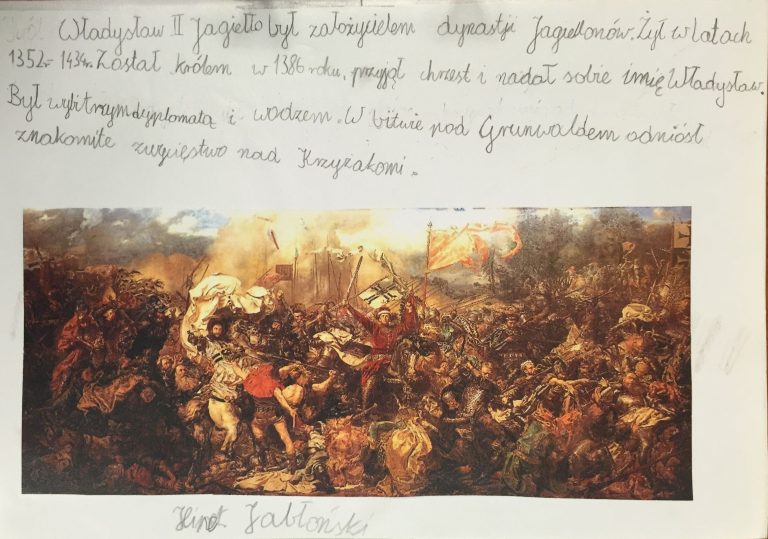 Władysław II Jagiełło był założycielem dynastji Jagiellonów. Żył w latach
1352r- 1434r. Został królem w 1386 roku, przyjął chrzest i nadał sobie imię Władysław.
Był wybitnym dyplomatą i wodzem. W bitwie pod Grunwaldem odniósł
znakomite zwycięstwo nad Krzyżakami.
Jabłoński